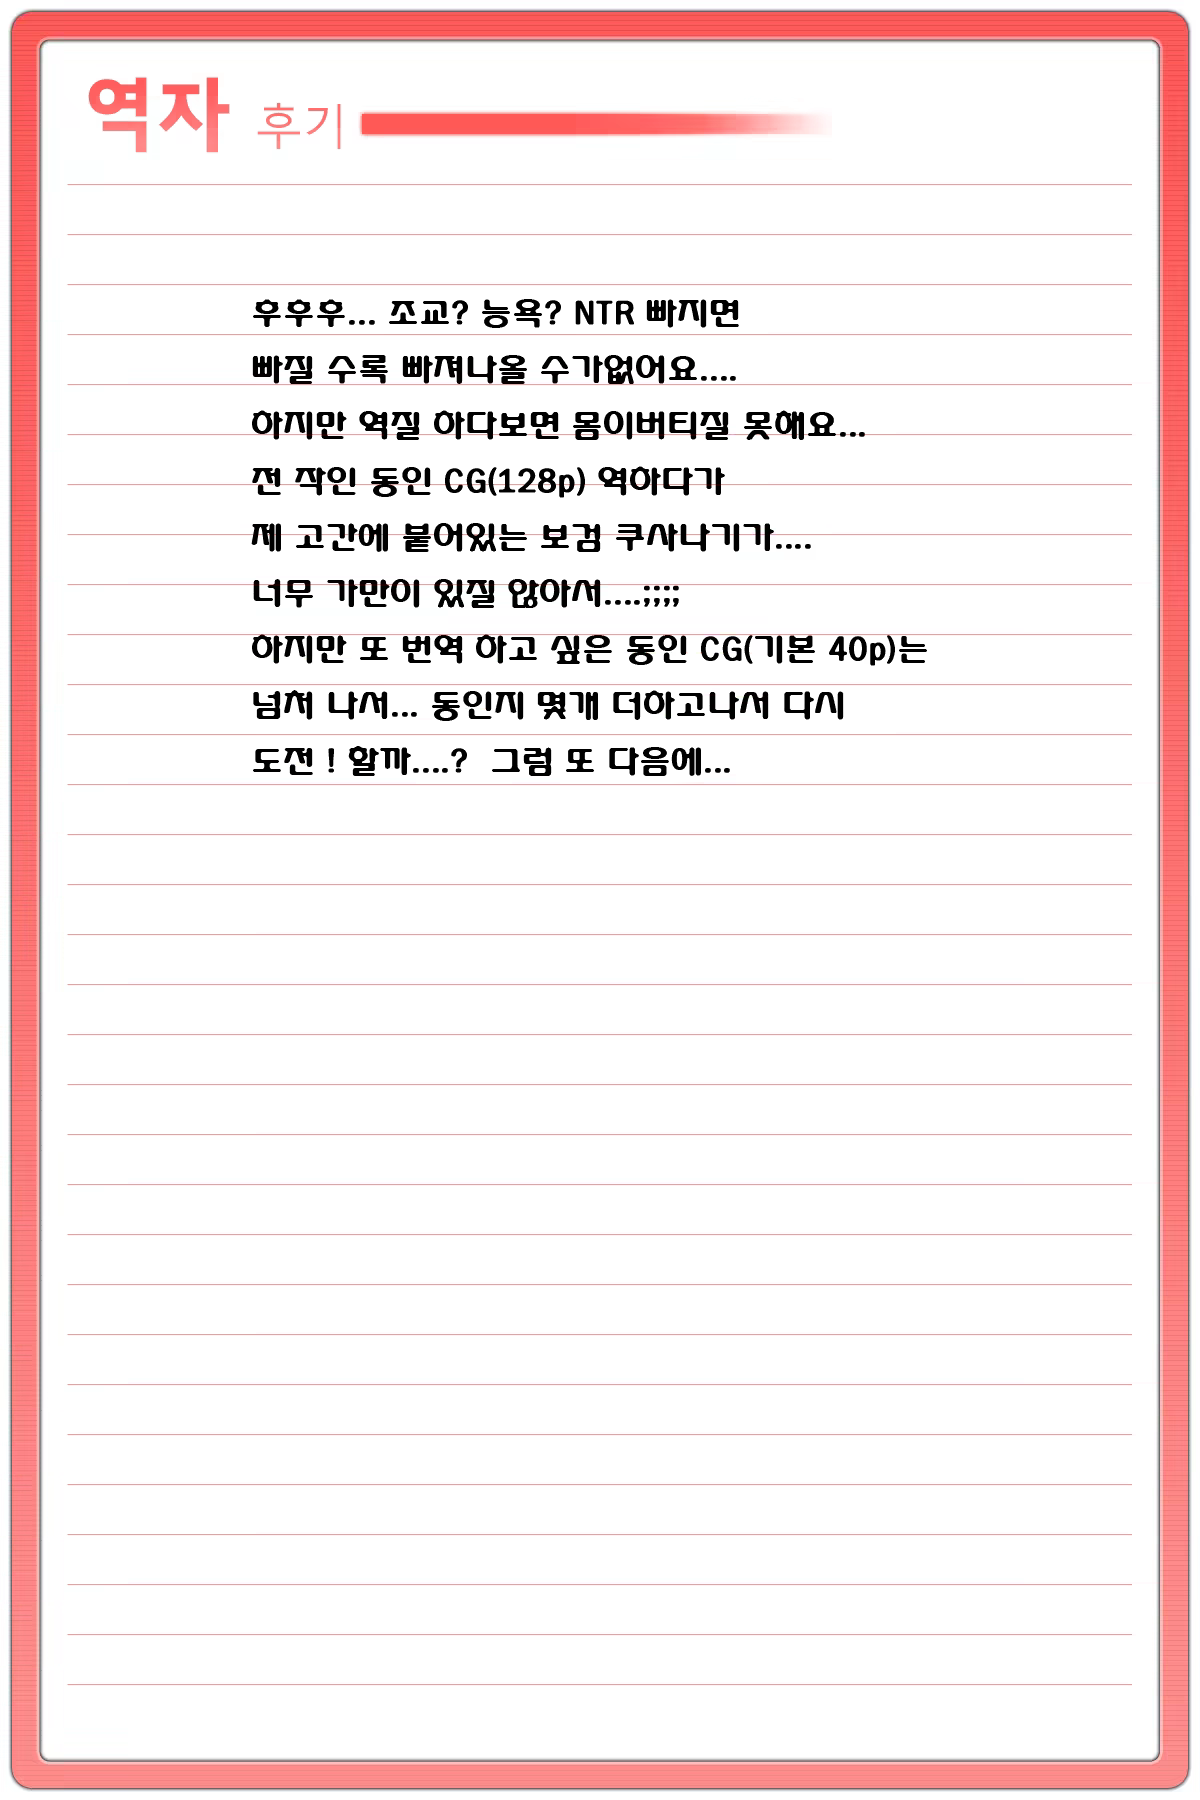 역자 후기
후후후... 조교? 능욕? NTR 빠지면
빠질 수록 빠져나올 수가없어요....
하지만 역질 하다보면 몸이버티질 못해요...
전 작인 동인 CG(128p) 역하다가
제 고간에 붙어있는 보검 쿠사나기가....
너무 가만이 있질 않아서....;;;;
하지만 또 번역 하고 싶은 동인 CG(기본 40p)는
넘처 나서... 동인지 몇개 더하고나서 다시
도전 ! 할까....? 그럼 또 다음에...